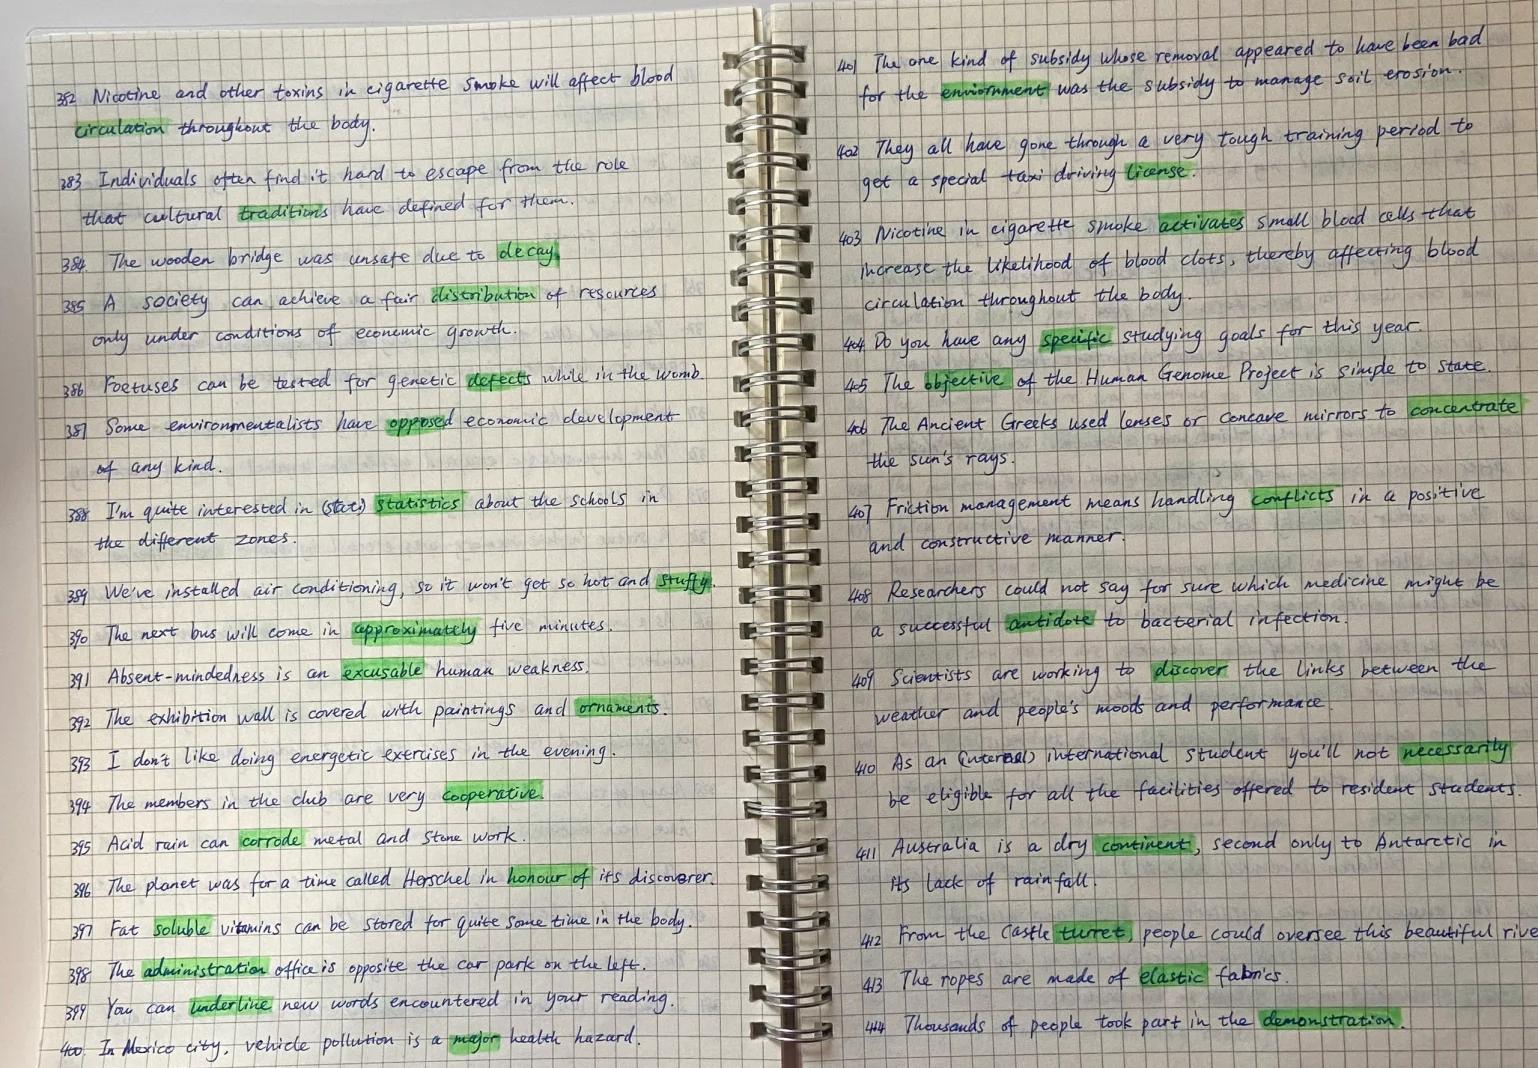 382 Nicotine and other toxins in cigarette smoke will affect blood
circulation throughout the body.
383 Individuals often find it hard to escape from the role
that cultural traditions have defined for them.
384 The wooden bridge was unsafe due to decay.
385 A society can achieve a fair distribution of resources
only under conditions of economic growth.
386 Foetuses can be tested for genetic defects while in the womb.
387 Some environmentalists have opposed economic development
of any kind.
388 I'm quite interested in (stati) statistics about the schools in
the different zones.
389 We've installed air conditioning, so it won't get so hot and stuffy.
390 The next bus will come in approximately five minutes.
391 Absent-mindedness is an excusable human weakness.
392 The exhibition wall is covered with paintings and ornaments.
393 I don't like doing energetic exercises in the evening.
394 The members in the club are very cooperative.
395 Acid rain can corrode metal and stone work.
396 The planet was for a time called Herschel in honour of its discoverer.
397 Fat soluble vitamins can be stored for quite some time in the body.
398 The administration office is opposite the car park on the left.
399 You can underline new words encountered in your reading.
400 In Mexico city, vehicle pollution is a major health hazard.
401 The one kind of subsidy whose removal appeared to have been bad
for the enviornment was the subsidy to manage soil erosion.
402 They all have gone through a very tough training period to
get a special taxi driving license.
403 Nicotine in cigarette smoke activates small blood cells that
increase the likelihood of blood clots, thereby affecting blood
circulation throughout the body.
404 Do you have any specific studying goals for this year.
405 The objective of the Human Genome Project is simple to state.
406 The Ancient Greeks used lenses or concave mirrors to concentrate
the sun's rays.
407 Friction management means handling conflicts in a positive
and constructive manner.
408 Researchers could not say for sure which medicine might be
a successful antidote to bacterial infection.
409 Scientists are working to discover the links between the
weather and people's moods and performance.
410 As an (internal) international student you'll not necessarily
be eligible for all the facilities offered to resident students.
411 Australia is a dry continent, second only to Antarctic in
its lack of rainfall.
412 From the castle turret, people could oversee this beautiful rive
413 The ropes are made of elastic fabrics.
414 Thousands of people took part in the demonstration.